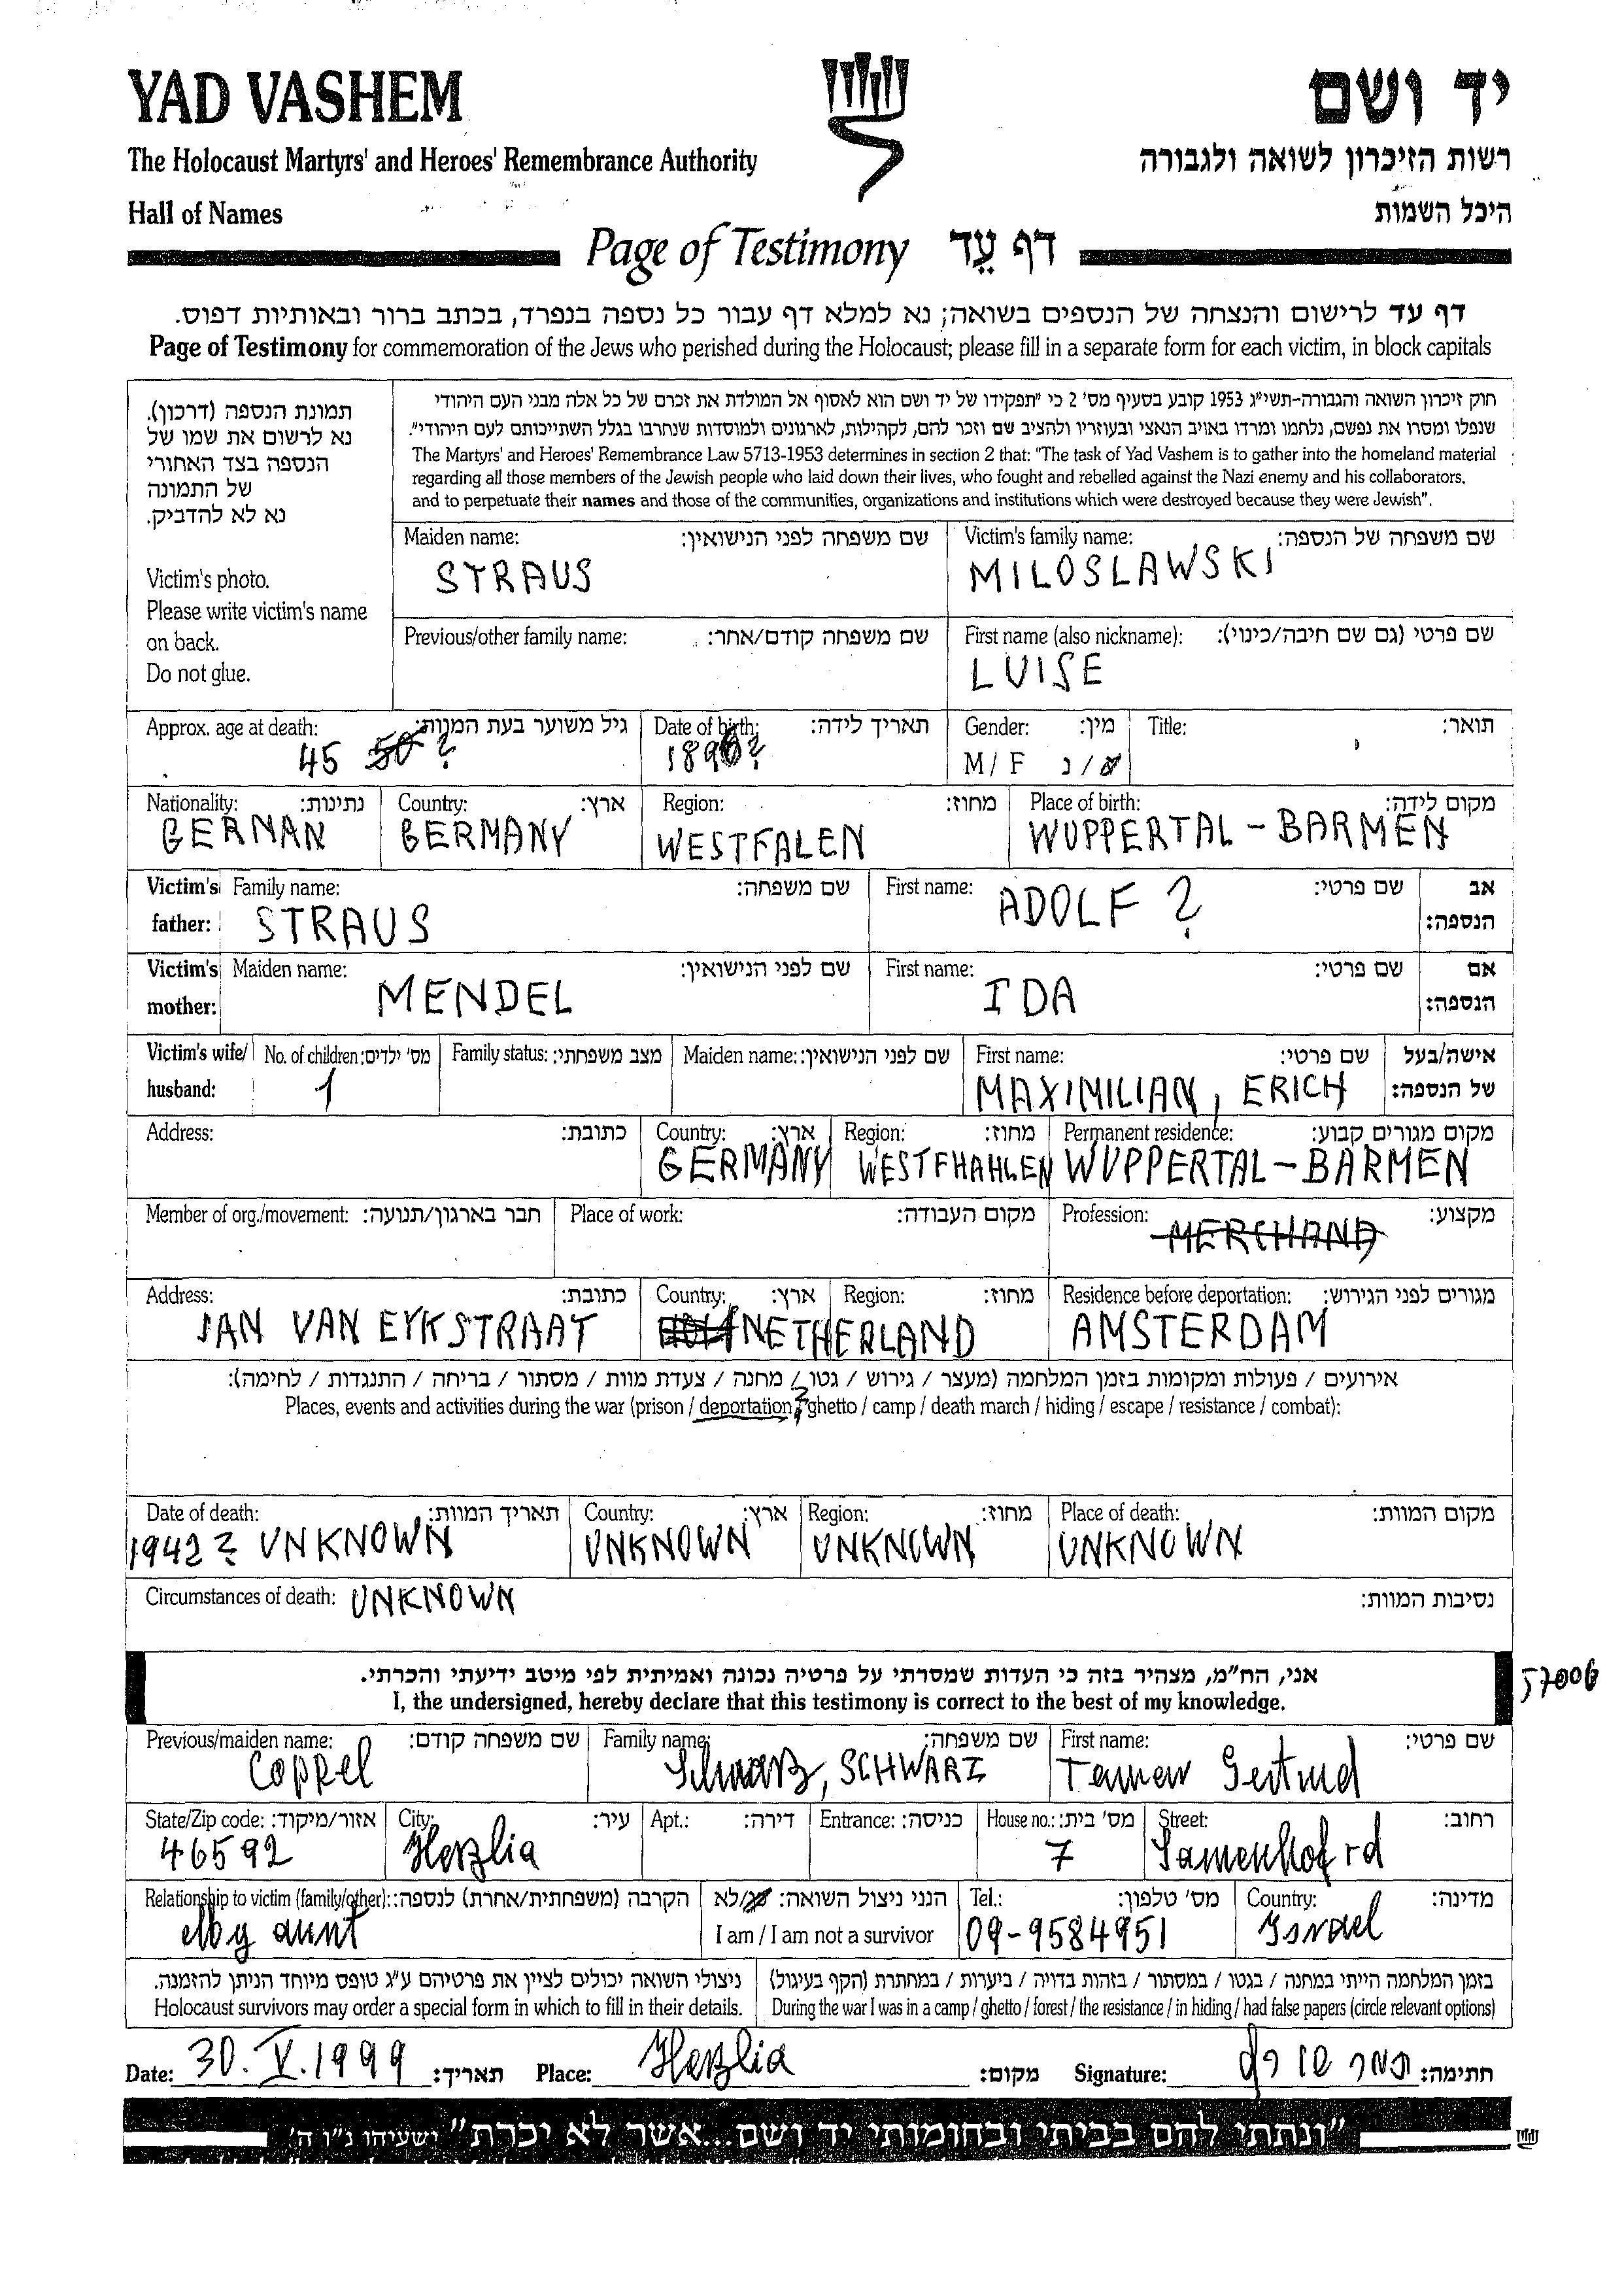 YAD VASHEM
יד ושם
The Holocaust Martyrs' and Heroes' Remembrance Authority
רשות הזיכרון לשואה ולגבורה
Hall of Names
היכל השמות
Page of Testimony דף עֵד
דף עד לרישום והנצחה של הנספים בשואה; נא למלא דף עבור כל נספה בנפרד, בכתב ברור ובאותיות דפוס.
Page of Testimony for commemoration of the Jews who perished during the Holocaust; please fill in a separate form for each victim, in block capitals
תמונת הנספה (דרכון).
נא לרשום את שמו של
הנספה בצד האחורי
של התמונה
נא לא להדביק.
Victim's photo.
Please write victim's name
on back.
Do not glue.
חוק זיכרון השואה והגבורה-תשי"ג 1953 קובע בסעיף מס' 2 כי "תפקידו של יד ושם הוא לאסוף אל המולדת את זכרם של כל אלה מבני העם היהודי
שנפלו ומסרו את נפשם, נלחמו ומרדו באויב הנאצי ובעוזריו ולהציב שם וזכר להם, לקהילות, לארגונים ולמוסדות שנחרבו בגלל השתייכותם לעם היהודי".
The Martyrs' and Heroes' Remembrance Law 5713-1953 determines in section 2 that: "The task of Yad Vashem is to gather into the homeland material
regarding all those members of the Jewish people who laid down their lives, who fought and rebelled against the Nazi enemy and his collaborators,
and to perpetuate their names and those of the communities, organizations and institutions which were destroyed because they were Jewish".
Maiden name: שם משפחה לפני הנישואין:
STRAUS
Victim's family name: שם משפחה של הנספה:
MILOSLAWSKI
Previous/other family name: שם משפחה קודם/אחר:
First name (also nickname): שם פרטי (גם שם חיבה/כינוי):
LUISE
Approx. age at death: גיל משוער בעת המוות:
45 50 ?
Date of birth: תאריך לידה:
1896?
Gender: מין:
M / F ז / נ
Title: תואר:
Nationality: נתינות:
GERMAN
Country: ארץ:
GERMANY
Region: מחוז:
WESTFALEN
Place of birth: מקום לידה:
WUPPERTAL - BARMEN
Victim's father: Family name: שם משפחה:
STRAUS
First name: שם פרטי: אב הנספה:
ADOLF ?
Victim's mother: Maiden name: שם לפני הנישואין:
MENDEL
First name: שם פרטי: אם הנספה:
IDA
Victim's wife/ husband: No. of children: מס' ילדים:
1
Family status: מצב משפחתי:
Maiden name: שם לפני הנישואין:
First name: שם פרטי: אישה/בעל של הנספה:
MAXIMILIAN, ERICH
Address: כתובת:
Country: ארץ:
GERMANY
Region: מחוז:
WESTFHAHLEN
Permanent residence: מקום מגורים קבוע:
WUPPERTAL - BARMEN
Member of org./movement: חבר בארגון/תנועה:
Place of work: מקום העבודה:
Profession: מקצוע:
MERCHAND
Address: כתובת:
JAN VAN EYKSTRAAT
Country: ארץ: Region: מחוז:
NETHERLAND
Residence before deportation: מגורים לפני הגירוש:
AMSTERDAM
אירועים / פעולות ומקומות בזמן המלחמה (מעצר / גירוש / גטו / מחנה / צעדת מוות / מסתור / בריחה / התנגדות / לחימה):
Places, events and activities during the war (prison / deportation ? ghetto / camp / death march / hiding / escape / resistance / combat):
Date of death: תאריך המוות:
1942? UNKNOWN
Country: ארץ:
UNKNOWN
Region: מחוז:
UNKNOWN
Place of death: מקום המוות:
UNKNOWN
Circumstances of death: UNKNOWN נסיבות המוות:
אני, הח"מ, מצהיר בזה כי העדות שמסרתי על פרטיה נכונה ואמיתית לפי מיטב ידיעתי והכרתי.
I, the undersigned, hereby declare that this testimony is correct to the best of my knowledge.
57006
Previous/maiden name: שם משפחה קודם:
Coppel
Family name: שם משפחה:
Schwarz, SCHWARZ
First name: שם פרטי:
Tamar Gertrud
State/Zip code: אזור/מיקוד:
46592
City: עיר:
Herzlia
Apt.: דירה:
Entrance: כניסה:
House no.: מס' בית:
7
Street: רחוב:
Samenhof rd
Relationship to victim (family/other): הקרבה (משפחתית/אחרת) לנספה:
My aunt
הנני ניצול השואה: כן/לא
I am / I am not a survivor
Tel.: מס' טלפון:
09-9584951
Country: מדינה:
Israel
ניצולי השואה יכולים לציין את פרטיהם ע"ג טופס מיוחד הניתן להזמנה.
Holocaust survivors may order a special form in which to fill in their details.
בזמן המלחמה הייתי במחנה / בגטו / במסתור / בזהות בדויה / ביערות / במחתרת (הקף בעיגול)
During the war I was in a camp / ghetto / forest / the resistance / in hiding / had false papers (circle relevant options)
Date: 30. V. 1999 תאריך: Place: Herzlia מקום: Signature: תמר שורץ חתימה:
"ונתתי להם בביתי ובחומותי יד ושם...אשר לא יכרת" ישעיהו נ"ו ה'